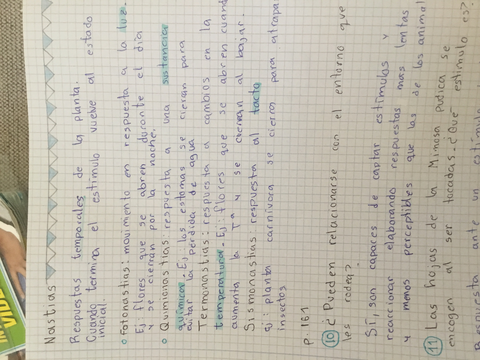 Nastias
Respuestas temporales de la planta.
Cuando termina el estímulo vuelve al estado
inicial.
o Fotonastias: movimiento en respuesta a la luz.
Ej: flores que se abren durante el día
y se cierran por la noche.
o Quimionastias: respuesta a una sustancias
químicas. Ej: los estomas se cierran para
evitar la pérdida de agua
Termonastias: respuesta a cambios en la
temperatura. Ej: flores que se abren cuand
aumenta la Tª y se cierran al bajar.
Sismonastias: respuesta al tacto
ej: planta carnívora se cierran para atrapa
insectos
p. 161
10 ¿Pueden relacionarse con el entorno que
les rodea?
Sí, son capaces de captar estímulos y
reaccionar elaborando respuestas más lentas
y menos perceptibles que las de los animal
11 Las hojas de la Mimosa púdica se
encogen al ser tocadas. ¿Qué estímulo es?
Respuesta ante un estímu